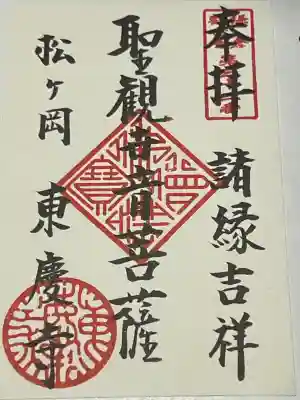 奉拝
諸縁吉祥
聖観世音菩薩
松ヶ岡
東慶寺